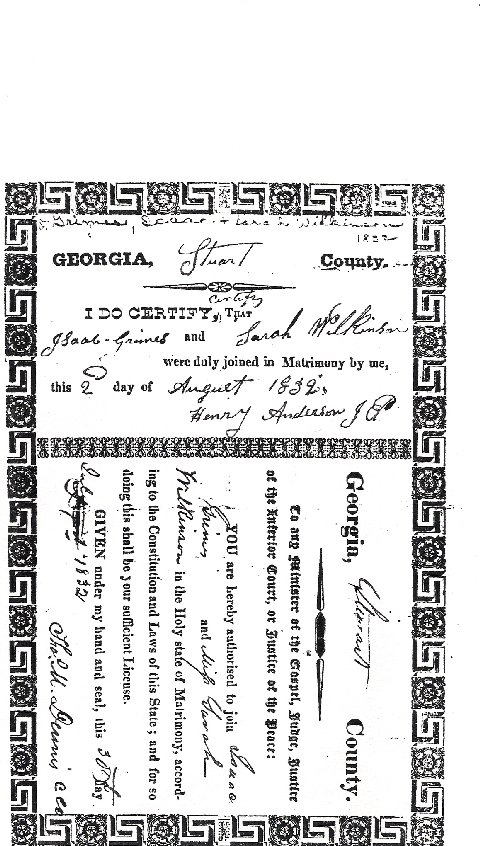 Grimes, Isaac + Sarah Wilkinson
1832
GEORGIA, Stuart County.
certify
I DO CERTIFY, THAT
Isaac Grimes and Sarah Wilkinson
were duly joined in Matrimony by me,
this 2 day of August 1832,
Henry Anderson J P
Georgia, Stewart County.
To any Minister of the Gospel, Judge, Justice
of the Inferior Court, or Justice of the Peace:
YOU are hereby authorised to join Isaac
Grimes and Miss Sarah
Wilkinson in the Holy state of Matrimony, accord-
ing to the Constitution and Laws of this State; and for so
doing this shall be your sufficient License.
GIVEN under my hand and seal, this 30 Day
July 1832
Tho. M. Dennis cco